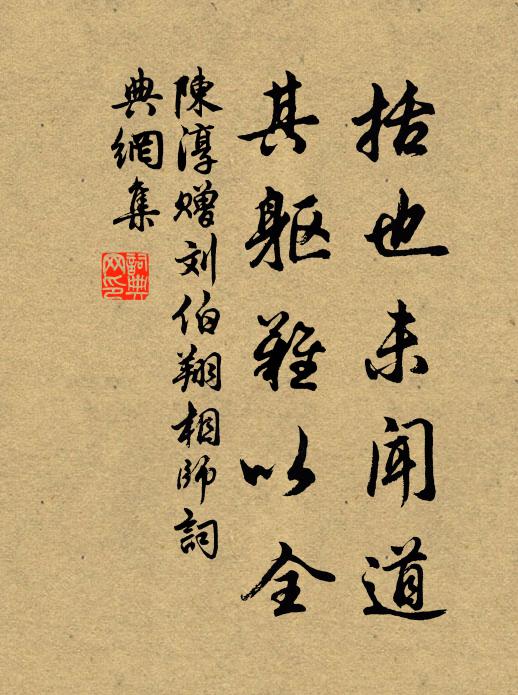 括也未闻道
其躯難以全
陳淳赠刘伯翔相師詞
典網集
詞典网印